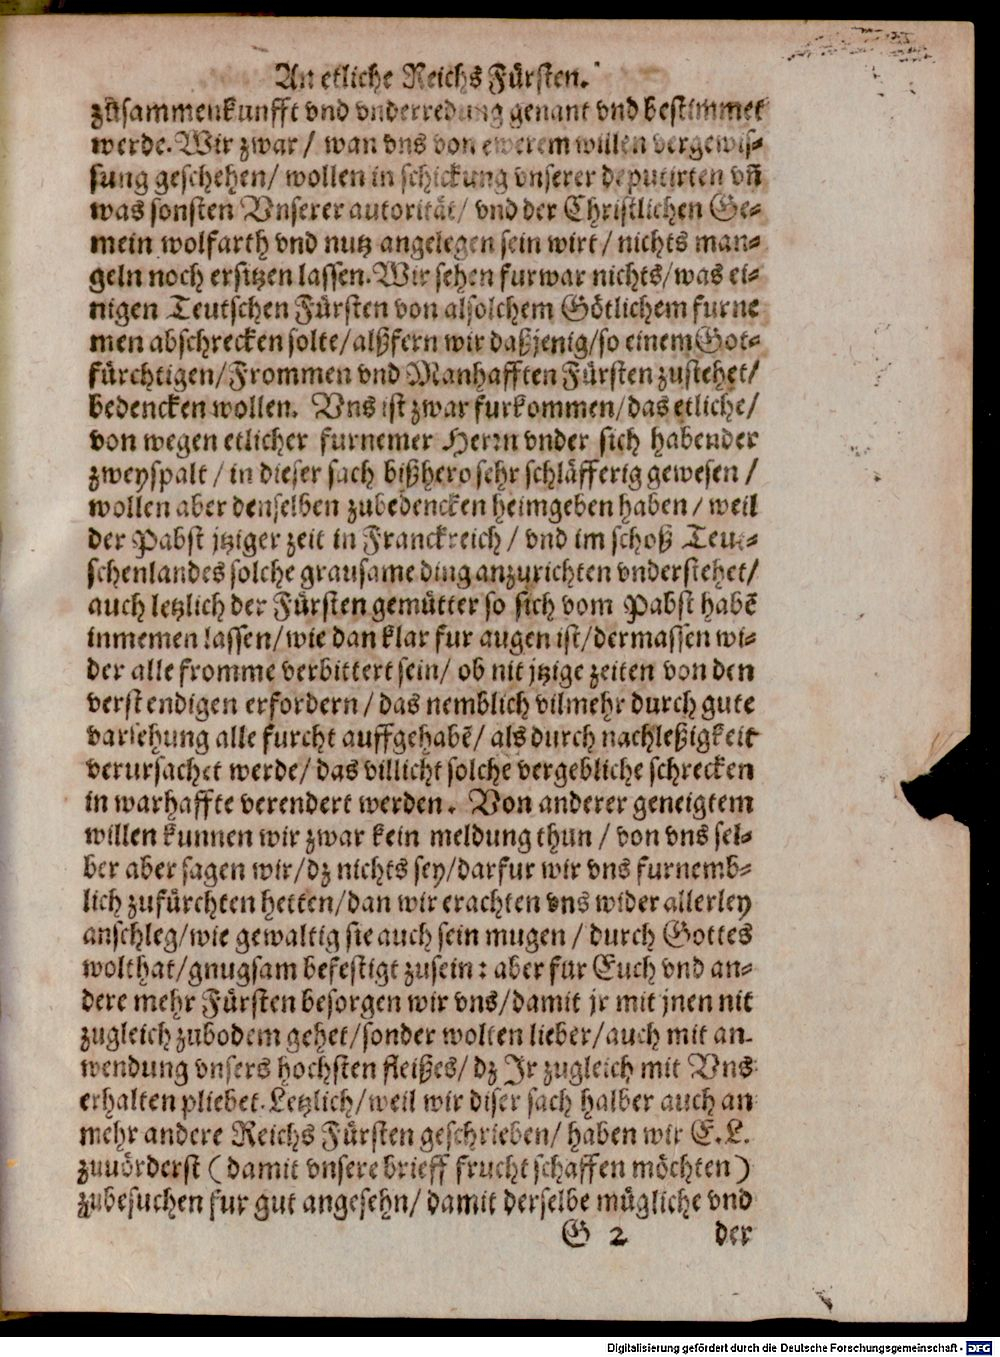 An etliche Reichs Fürsten.
zůsammenkunfft vnd vnderredung genant vnd bestimmet
werde. Wir zwar / wan vns von ewerem willen vergewis-
sung geschehen / wollen in schickung vnserer deputirten vñ
was sonsten Vnserer autoritåt / vnd der Christlichen Ge-
mein wolfarth vnd nutz angelegen sein wirt / nichts man-
geln noch ersitzen lassen. Wir sehen furwar nichts / was ei-
nigen Teutschen Fürsten von alsolchem Götlichem furne
men abschrecken solte / alßfern wir daßjenig / so einem Got-
fürchtigen / Frommen vnd Manhafften Fürsten zustehet /
bedencken wollen. Vns ist zwar furkommen / das etliche /
von wegen etlicher furnemer Herrn vnder sich habender
zweyspalt / in dieser sach bißhero sehr schläfferig gewesen /
wollen aber denselben zubedencken heimgeben haben / weil
der Pabst jtziger zeit in Franckreich / vnd im schoß Teut-
schenlandes solche grausame ding anzurichten vnderstehet /
auch letzlich der Fürsten gemütter so sich vom Pabst habẽ
inmemen lassen / wie dan klar fur augen ist / dermassen wi-
der alle fromme verbittert sein / ob nit jtzige zeiten von den
verstendigen erfordern / das nemblich vilmehr durch gute
varsehung alle furcht auffgehabẽ / als durch nachleßigkeit
verursachet werde / das villicht solche vergebliche schrecken
in warhaffte verendert werden. Von anderer geneigtem
willen kunnen wir zwar kein meldung thun / von vns sel-
ber aber sagen wir / dz nichts sey / darfur wir vns furnemb-
lich zufürchten hetten / dan wir erachten vns wider allerley
anschleg / wie gewaltig sie auch sein mugen / durch Gottes
wolthat / gnugsam befestigt zusein : aber fur Euch vnd an-
dere mehr Fürsten besorgen wir vns / damit jr mit jnen nit
zugleich zubodem gehet / sonder wolten lieber / auch mit an-
wendung vnsers hochsten fleißes / dz Ir zugleich mit Vns
erhalten pliebet. Letzlich / weil wir diser sach halber auch an
mehr andere Reichs Fürsten geschrieben / haben wir E. L.
zuuörderst ( damit vnsere brieff frucht schaffen möchten )
zubesuchen fur gut angesehn / damit derselbe mügliche vnd
G 2 der
Digitalisierung gefördert durch die Deutsche Forschungsgemeinschaft - DFG